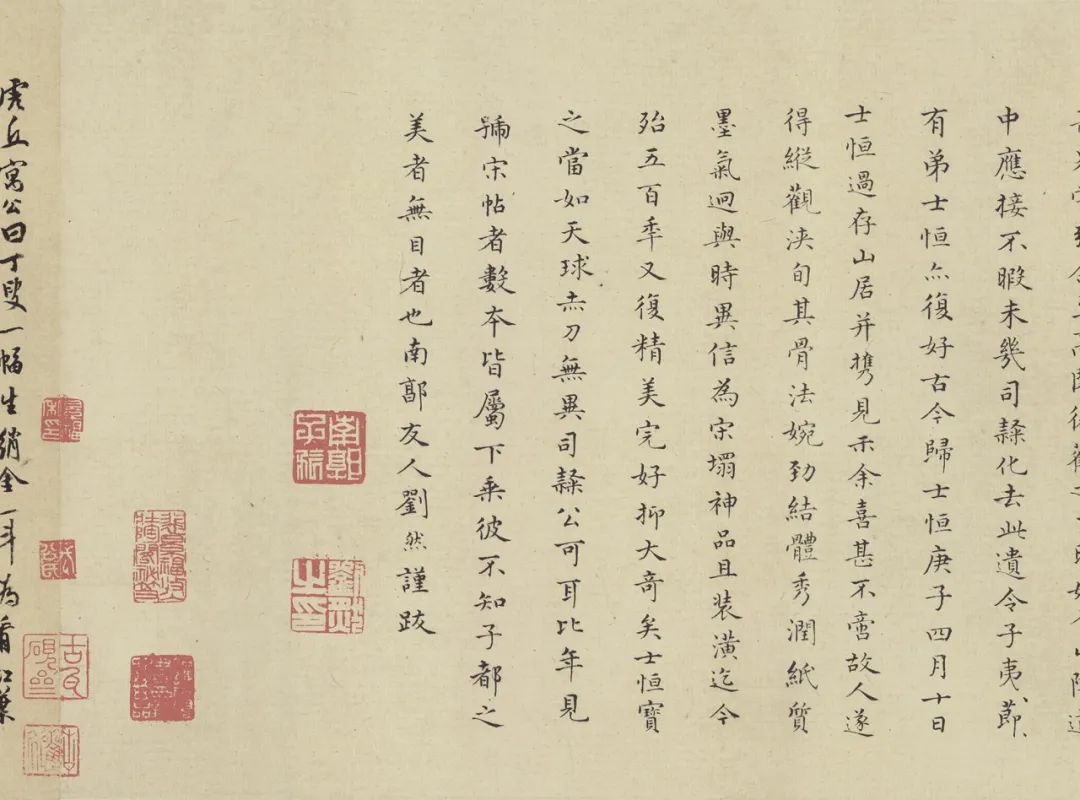 中應接不暇未幾司隸化去此遺令子夷節
有弟士恒亦復好古今歸士恒庚子四月十日
士恒過存山居并攜見示余喜甚不啻故人遂
得縱觀浹旬其骨法婉勁結體秀潤紙質
墨氣迥與時異信為宋塌神品且裝潢迄今
殆五百年又復精美完好抑大奇矣士恒寶
之當如天球赤刀無異司隸公可耳比年見
號宋帖者數本皆屬下乘彼不知子都之
美者無目者也南郭友人劉然謹跋
南郭子旅
劉然之印
虎丘寓公曰丁叟一幅生綃金一斗為看紅葉